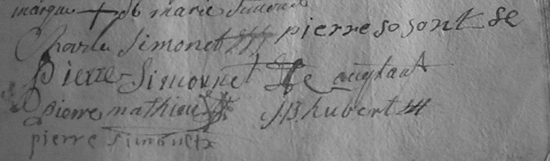 marque + de marie Simonet
Charle Simonet pierre sosont se
Pierre Simonnet
pierre mathieu JB hubert
pierre simonetz